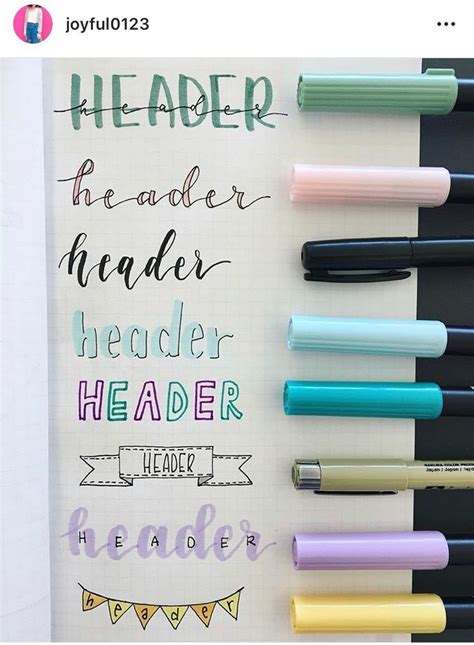 joyful0123
HEADER
header
header
header
header
HEADER
HEADER
header
HEADER
header